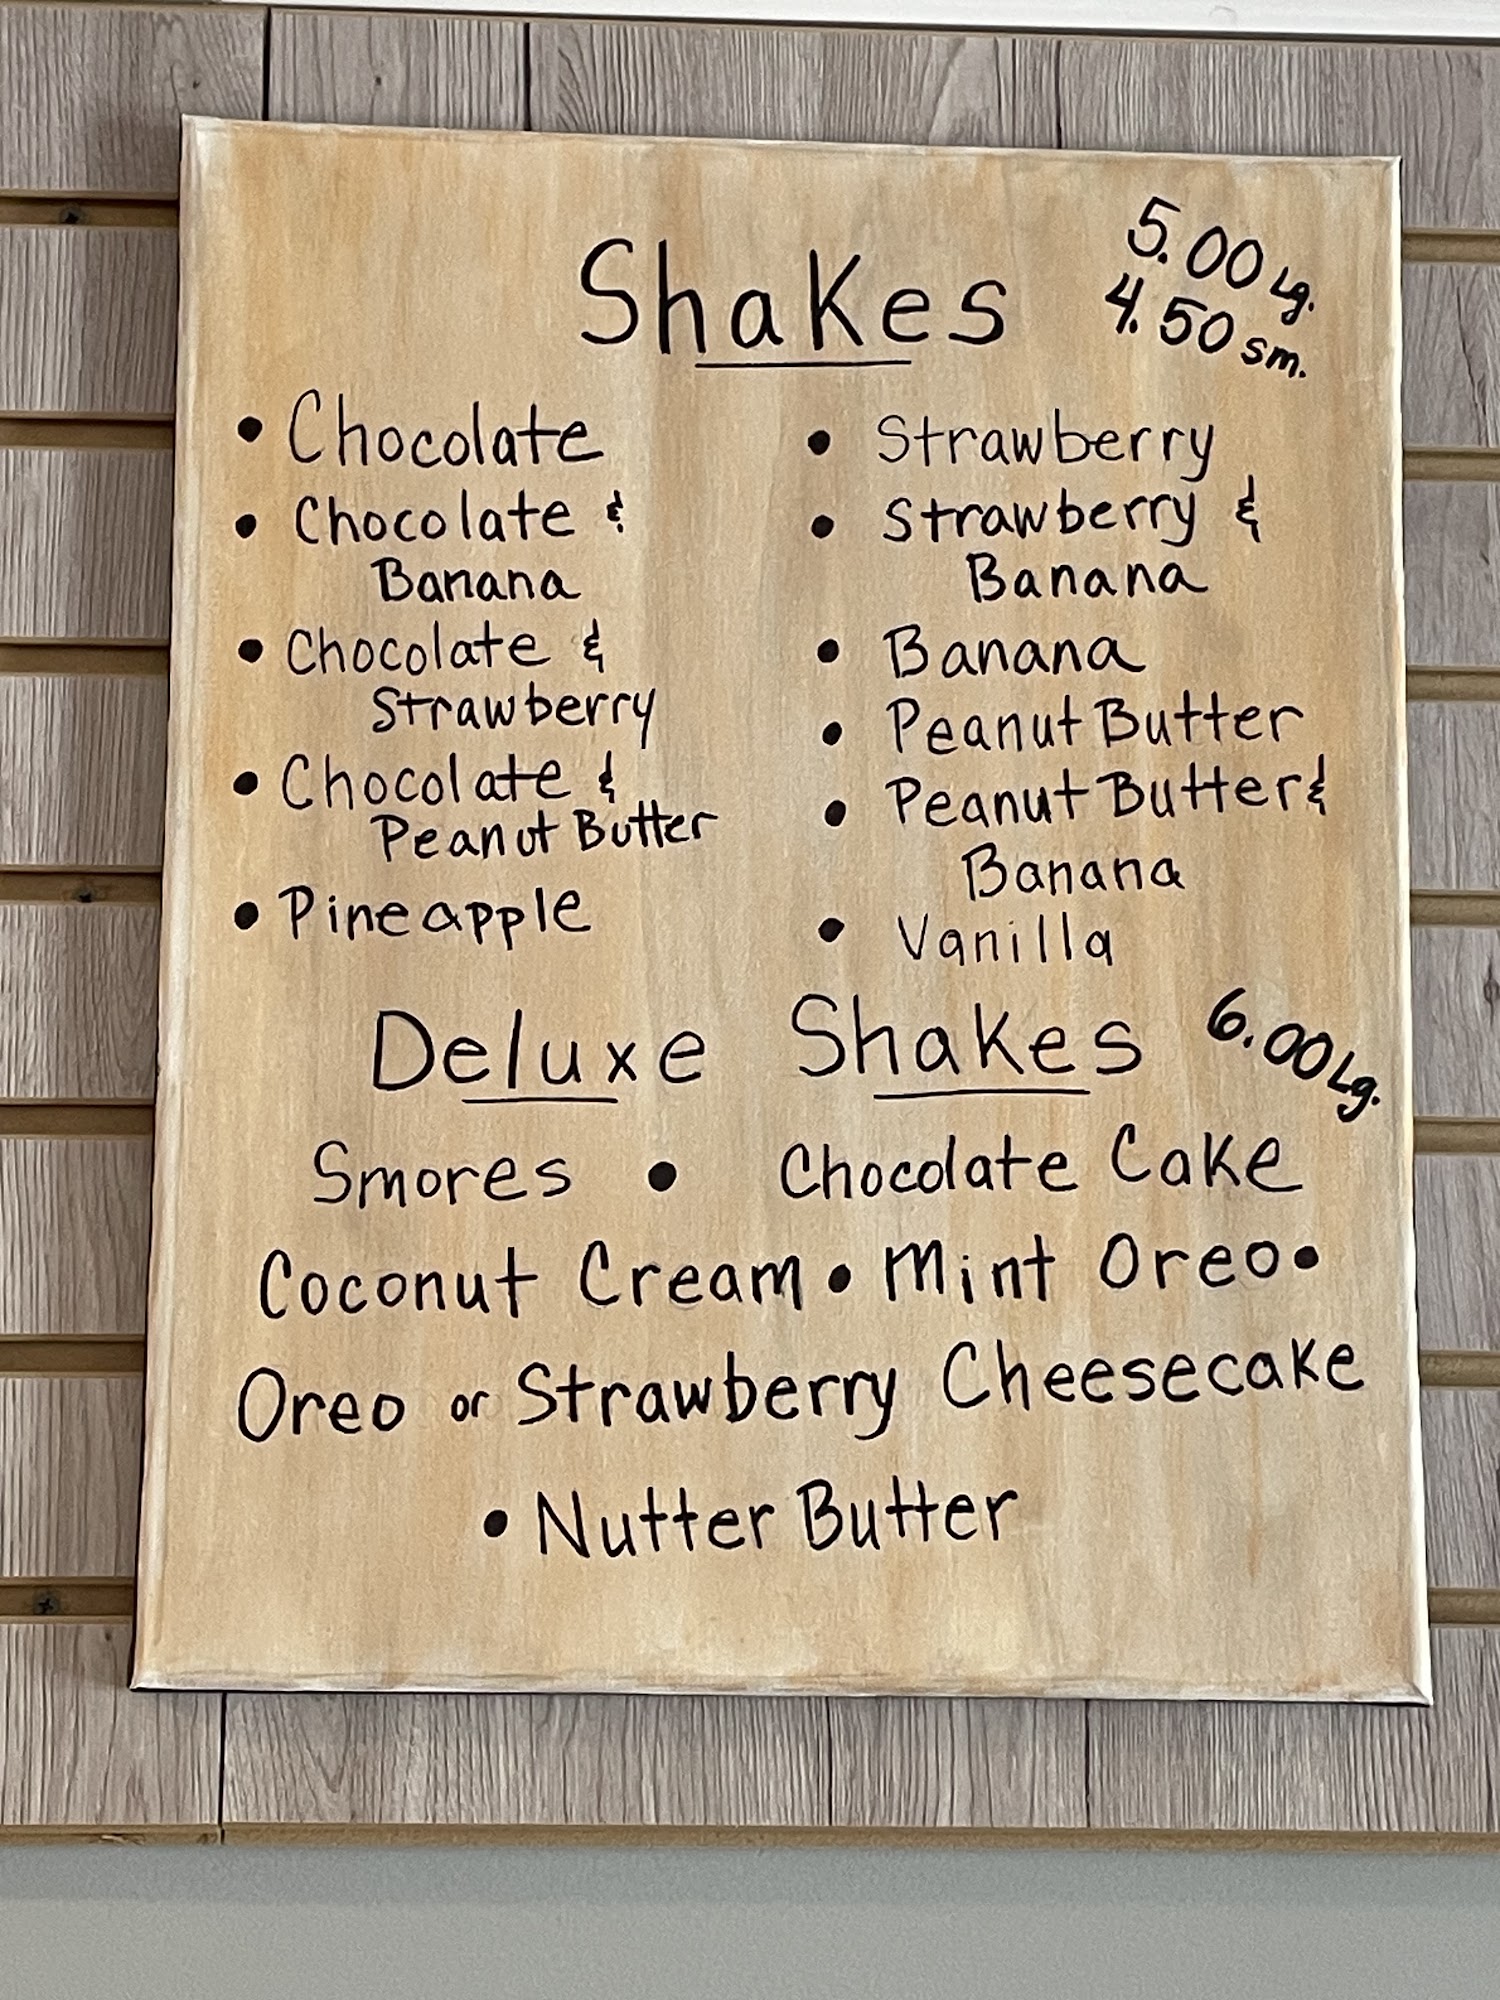 Shakes
5.00 Lg.
4.50 sm.
• Chocolate
• Chocolate &
Banana
• Chocolate &
Strawberry
• Chocolate &
Peanut Butter
• Pineapple
• Strawberry
• Strawberry &
Banana
• Banana
• Peanut Butter
• Peanut Butter &
Banana
• Vanilla
Deluxe Shakes 6.00 Lg.
Smores • Chocolate Cake
Coconut Cream • Mint Oreo •
Oreo or Strawberry Cheesecake
• Nutter Butter